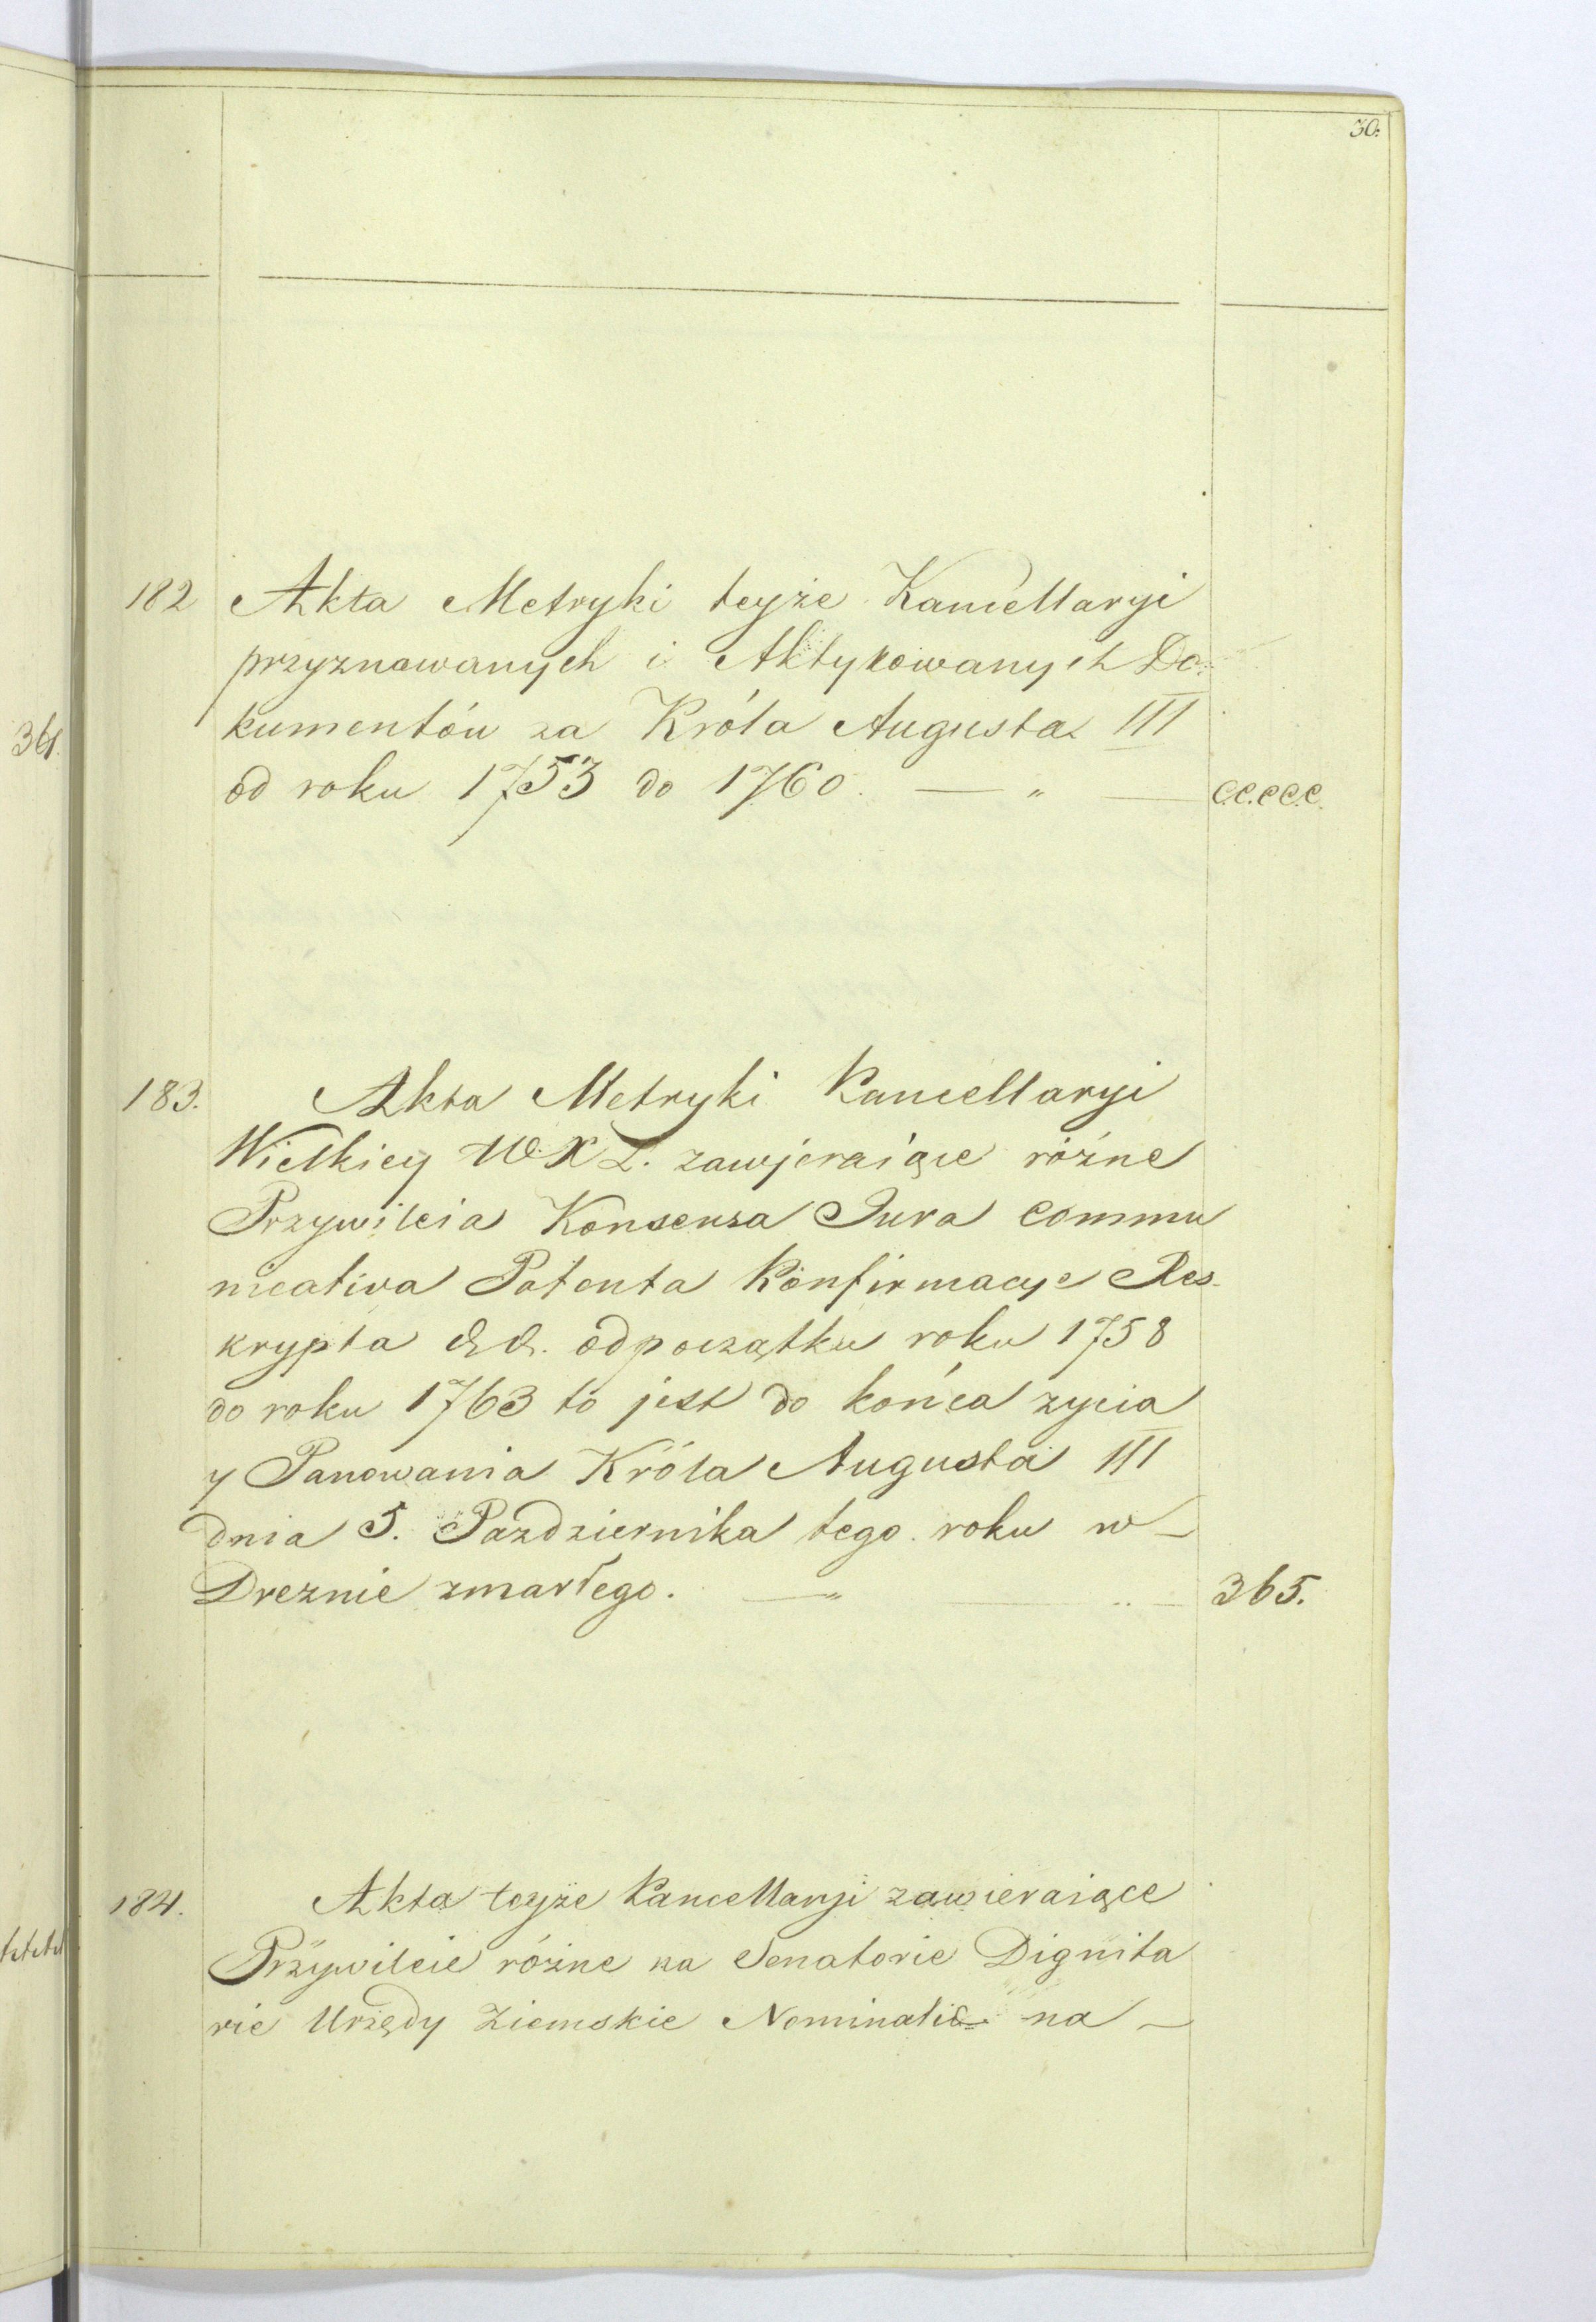 30.
182 Akta Metryki teyże Kancellaryi
przyznawanych i Aktykowanych Do-
kumentów za Króla Augusta III
od roku 1753 do 1760. — " — C.C.CC.C.
361.
183. Akta Metryki Kancellaryi
Wielkiey W.X L. zawjeraiące różne
Przywileia Konsensa Jura commu
nicativa Patenta Konfirmacye Res-
krypta &&. od początku roku 1758
do roku 1763 to jest do końca zycia
y Panowania Króla Augusta III
dnia 5. Pazdziernika tego roku w—
Dreznie zmarłego. — " — 365.
184. Akta teyże Kancellaryi zawieraiące
Przywileie różne na Senatorie Dignita
rie Urzędy Ziemskie Nominatie na —